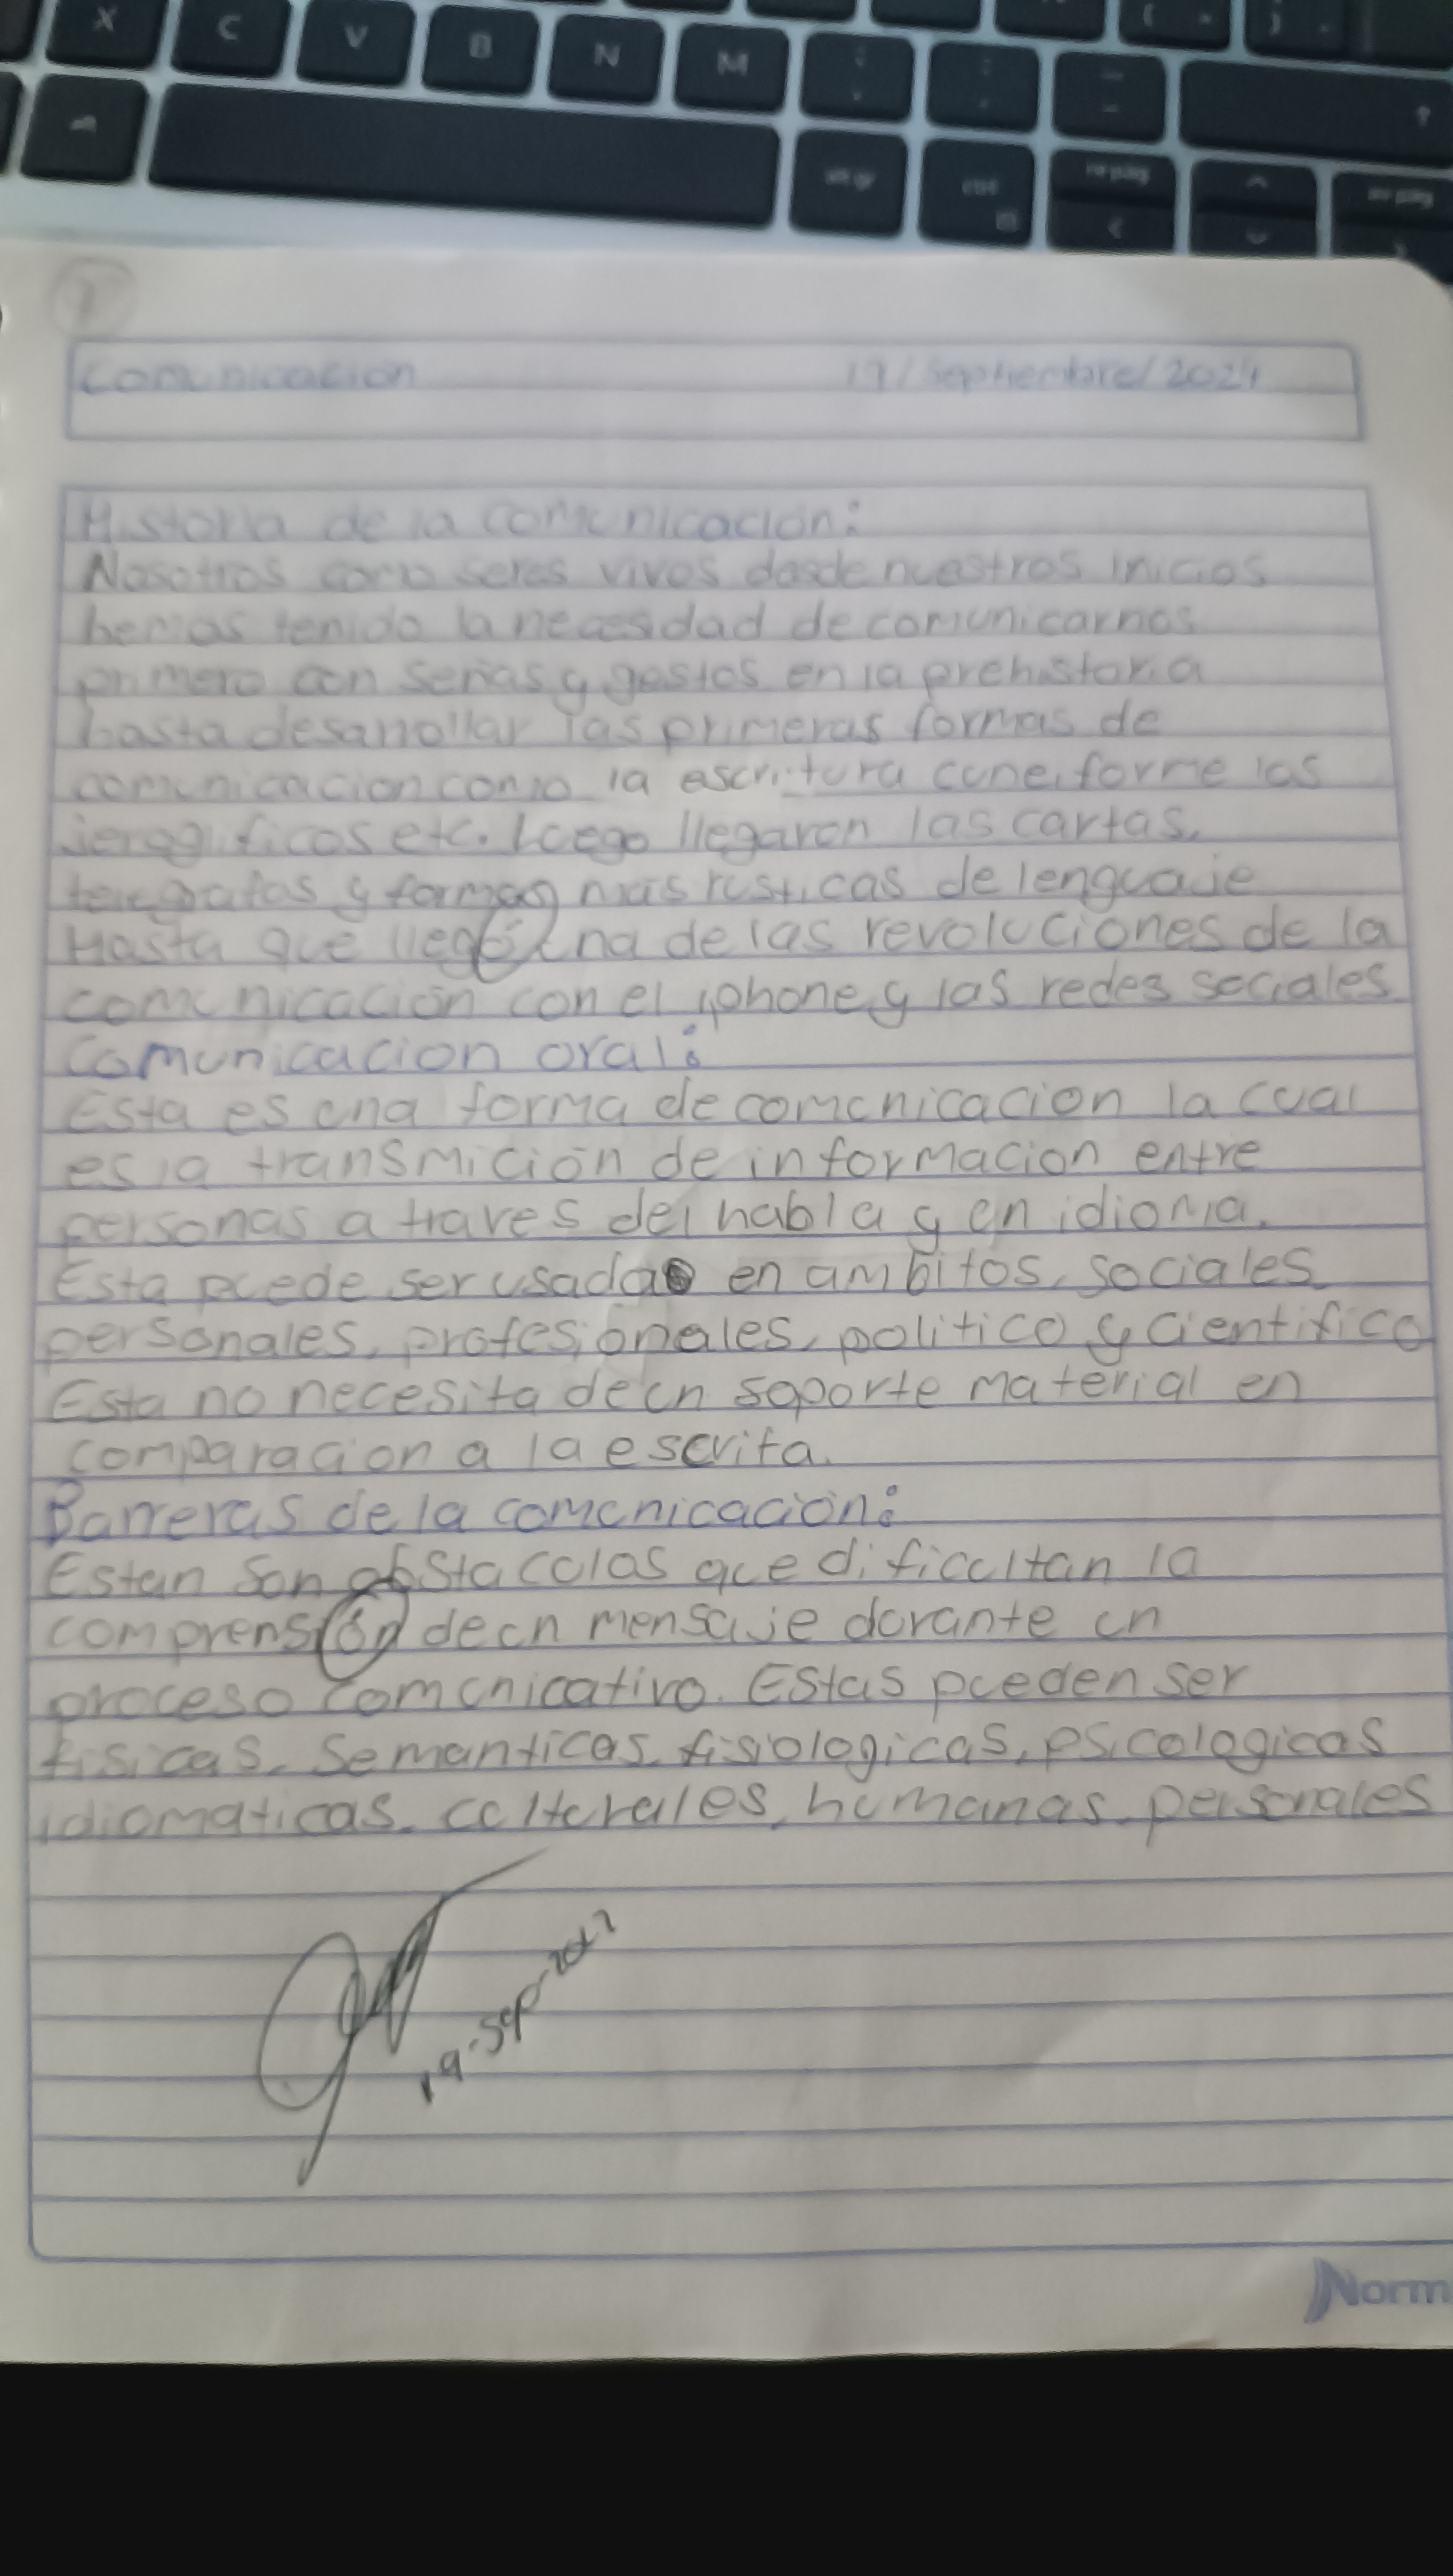 X C V B N M
alt gr ctrl
Comunicacion 19/Septiembre/2024
Historia de la comunicación:
Nosotros como seres vivos desde nuestros inicios
hemos tenido la necesidad de comunicarnos
primero con señas y gestos en la prehistoria
hasta desarrollar las primeras formas de
comunicacion como la escritura cuneiforme los
jeroglificos etc. Luego llegaron las cartas,
telegrafos y formas más rusticas de lenguaje
Hasta que llegó una de las revoluciones de la
comunicación con el iphone y las redes sociales
Comunicacion oral:
Esta es una forma de comunicacion la cual
es la transmición de informacion entre
personas a traves del habla y un idioma.
Esta puede ser usada en ambitos, sociales
personales, profesionales, politico y cientifico
Esta no necesita de un soporte material en
comparacion a la escrita.
Barreras de la comunicación:
Estan son obstaculos que dificultan la
comprensión de un mensaje durante un
proceso comunicativo. Estas pueden ser
fisicas, semanticas, fisiologicas, psicologicas
idiomaticas, culturales, humanas, personales
19-Sep-2024
Norm